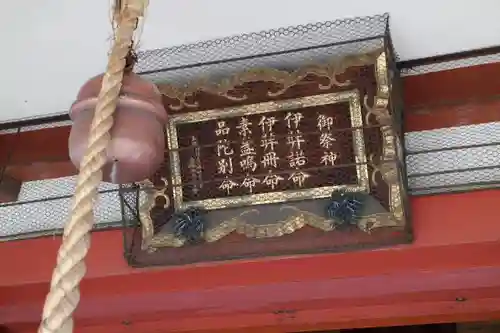 御祭神
伊弉諾命
伊弉冊命
素盞嗚命
品陀別命